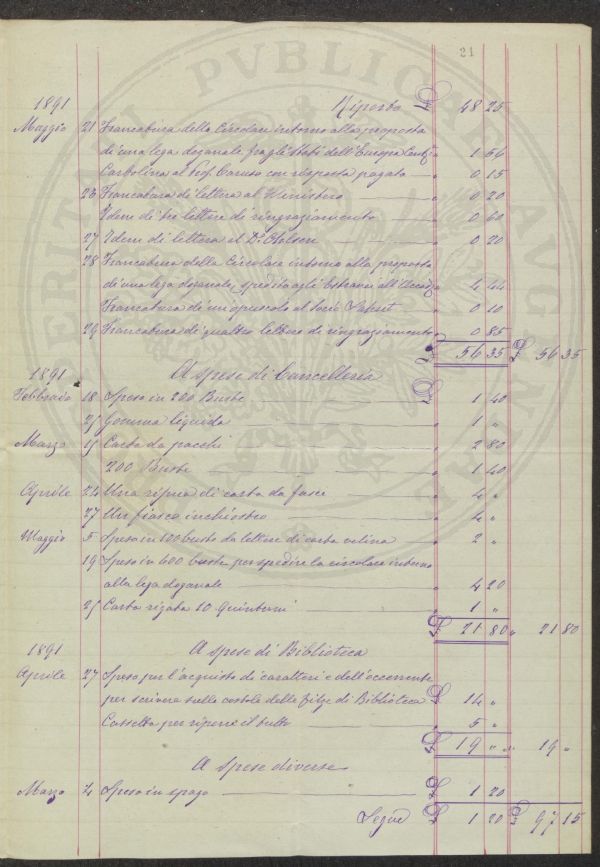 21
1891 Riporto £ 48 25
Maggio 21 Francatura della Circolare intorno alla proposta
di una lega doganale fra gli Stati dell'Europa Centr. " 1 56
Cartolina al Prof Caruso con risposta pagata — " 0 15
23 Francatura di lettera al Ministero — " 0 20
Idem di tre lettere di ringraziamento — " 0 60
27 Idem di lettera al Dr. — " 0 20
28 Francatura della Circolare intorno alla proposta
di una lega doganale, spedita agli Estranei all'Accad. " 4 44
Francatura di un opuscolo al Socio — " 0 10
29 Francatura di quattro lettere di ringraziamento " 0 85
£ 56 35 £ 56 35
1891 A spese di Cancelleria
Febbraio 18 Speso in 200 Buste — " 1 40
25 Gomma liquida — " 1 "
Marzo 15 Carta da pacchi " 2 80
200 Buste — " 1 40
Aprile 24 Una risma di carta da fasce — " 4 "
27 Un fiasco inchiostro — " 4 "
Maggio 5 Speso in 100 buste da lettere di carta velina — " 2 "
19 Speso in 600 buste per spedire la circolare intorno
alla lega doganale — " 4 20
25 Carta rigata 10 Quinterni — " 1 "
£ 21 80 " 21 80
1891 A spese di Biblioteca
Aprile 27 Speso per l'acquisto di caratteri e dell'occorrente
per scrivere sulle costole delle Filze di Biblioteca £ 14 "
Cassetta per riporre il tutto — " 5 "
£ 19 " " 19 "
A spese diverse
Marzo 4 Speso in spago — £ 1 20
Segue £ 1 20 £ 97 15